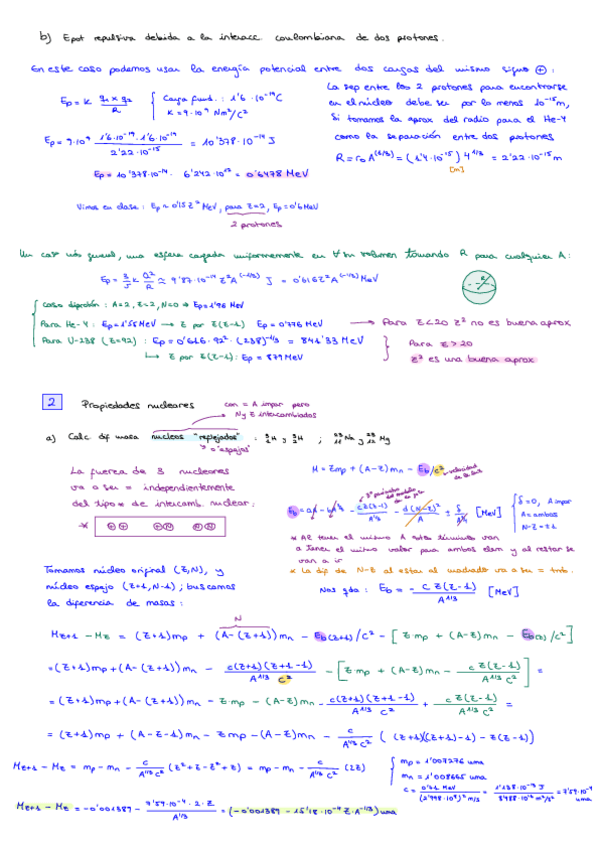 b) Epot repulsiva debida a la interacc. coulombiana de dos protones.
En este caso podemos usar la energía potencial entre dos cargas del mismo signo ⊕:
Ep = K q1 x q2 / R
{ Carga fund.: 1'6 · 10^-19 C
K = 9·10^9 Nm²/C²
La sep entre los 2 protones para encontrarse
en el núcleo debe ser por lo menos 10^-15 m,
Si tomamos la aprox del radio para el He-4
como la separación entre dos protones
R = r0 A^(1/3) = (1'4·10^-15) 4^1/3 = 2'22·10^-15 m
[m]
Ep = 9·10^9 1'6·10^-19 · 1'6·10^-19 / 2'22·10^-15 = 10'378·10^-14 J
Ep = 10'378·10^-14 · 6'242·10^12 = 0'6478 MeV
Vimos en clase: Ep ≈ 0'15 Z² MeV, para Z=2, Ep = 0'6 MeV
2 protones
Un caso más general, una esfera cargada uniformemente en ∀ su volumen tomando R para cualquier A:
Ep = 3/5 K Q²/R ≃ 9'87·10^-14 Z² A^(-1/3) J = 0'616 Z² A^(-1/3) MeV
Caso diprotón: A=2, Z=2, N=0 → Ep = 1'96 MeV
Para He-4: Ep = 1'55 MeV → Z por Z(Z-1) Ep = 0'776 MeV → Para Z<20 Z² no es buena aprox
Para U-238 (Z=92): Ep = 0'616 · 92² · (238)^-1/3 = 841'33 MeV
↳ Z por Z(Z-1): Ep = 879 MeV
Para Z > 20
Z² es una buena aprox
2 Propiedades nucleares
con = A impar pero
N y Z intercambiados
a) Calc dif masa nucleos "reflejados" : ³₁H y ³₂H ; ²³₁₁Na y ²³₁₂Mg
→ o "espejos"
La fuerza de 3 nucleares
va a ser = independientemente
del tipo de intercamb. nuclear:
M = Zmp + (A-Z)mn - Eb/c² → velocidad de la luz
[MeV]
{ δ=0, A impar
A = ambos
N-Z = ±1
* Al tener el mismo A estos términos van
a tener el mismo valor para ambos elem y al restar se
van a ir
* La dif de N-Z al estar al cuadrado va a ser = tmb.
Nos qda: Eb = - c Z(Z-1) / A^1/3 [MeV]
Tomamos núcleo original (Z,N), y
núcleo espejo (Z+1, N-1); buscamos
la diferencia de masas:
N
M_Z+1 - M_Z = (Z+1)mp + (A-(Z+1))mn - Eb(Z+1)/c² - [Z mp + (A-Z)mn - Eb(Z)/c²]
= (Z+1)mp + (A-(Z+1))mn - c(Z+1)(Z+1-1) / A^1/3 c² - [Z mp + (A-Z)mn - c Z(Z-1) / A^1/3 c²] =
= (Z+1)mp + (A-(Z+1))mn - Z mp - (A-Z)mn - c(Z+1)(Z+1-1) / A^1/3 c² + c Z(Z-1) / A^1/3 c² =
= (Z+1)mp + (A-Z-1)mn - Z mp - (A-Z)mn - c / A^1/3 c² ( (Z+1)((Z+1)-1) - Z(Z-1))
M_Z+1 - M_Z = mp - mn - c / A^1/3 c² (Z²+Z-Z²+Z) = mp - mn - c / A^1/3 c² (2Z)
{ mp = 1'007276 uma
mn = 1'008665 uma
M_Z+1 - M_Z = -0'001389 - 7'59·10^-4 · 2 · Z / A^1/3 = (-0'001389 - 15'18·10^-4 Z·A^-1/3) uma